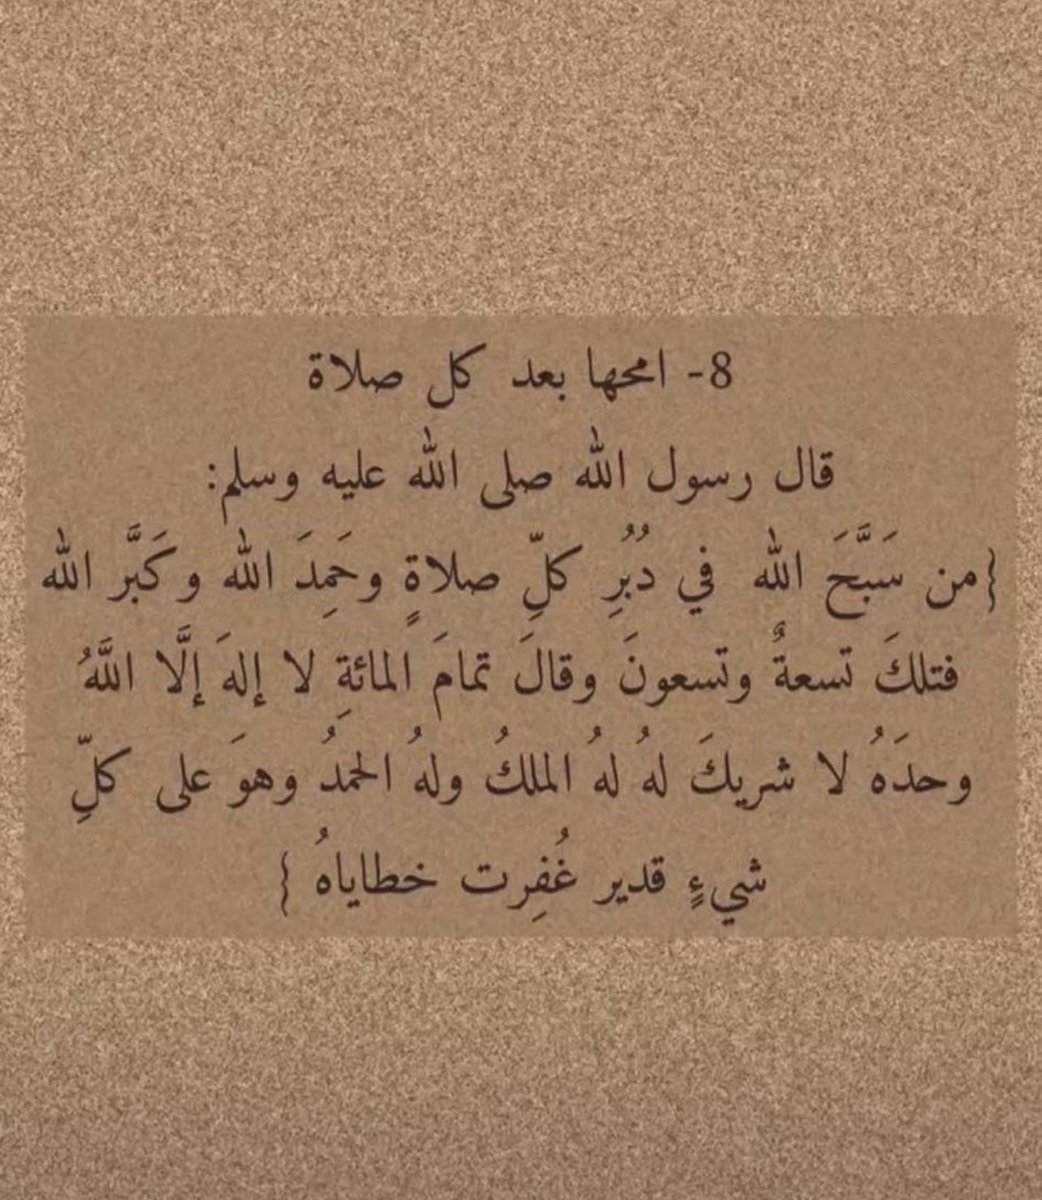 8- امحها بعد كل صلاة
قال رسول الله صلى الله عليه وسلم:
{من سَبَّحَ الله في دُبُرِ كلِّ صلاةٍ وحَمِدَ الله وكَبَّر الله
فتلكَ تسعةٌ وتسعونَ وقالَ تمامَ المائةِ لا إلهَ إلَّا اللَّهُ
وحدَهُ لا شريكَ لهُ لهُ الملكُ ولهُ الحمدُ وهوَ على كلِّ
شيءٍ قدير غُفِرت خطاياهُ }